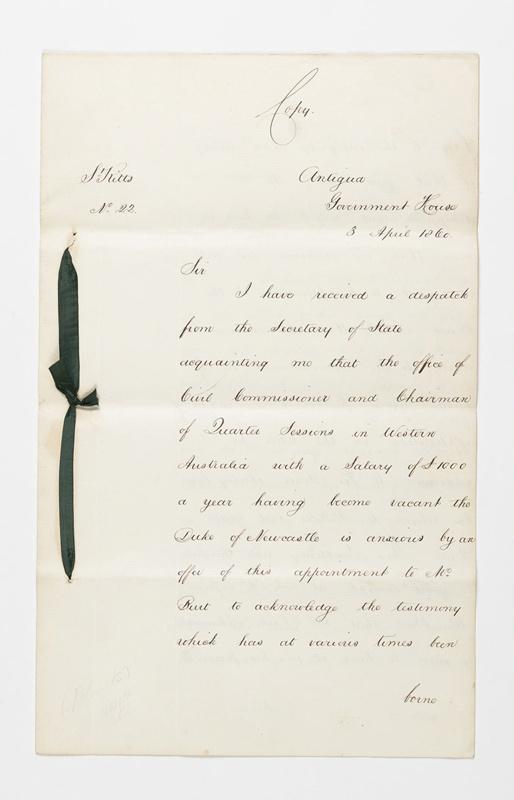 Copy.
St Kitts
No. 22.
Antigua
Government House
3 April 1860
Sir
I have received a despatch
from the Secretary of State
acquainting me that the office of
Civil Commissioner and Chairman
of Quarter Sessions in Western
Australia with a Salary of £1000
a year having become vacant the
Duke of Newcastle is anxious by an
offer of this appointment to Mr.
Burt to acknowledge the testimony
which has at various times been
borne